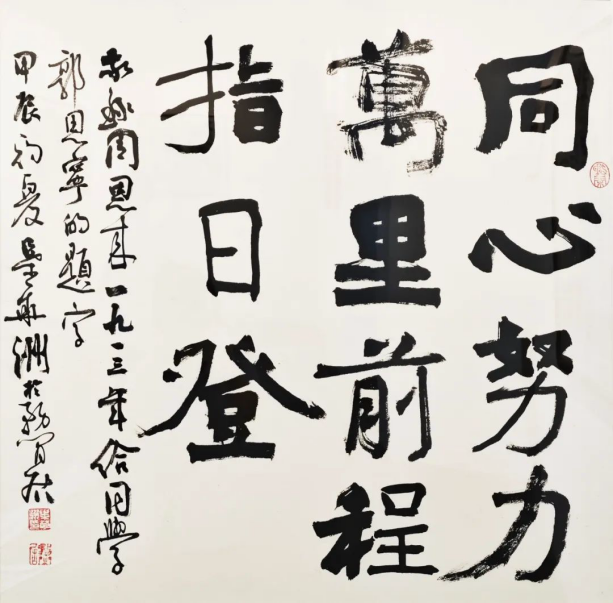 同心努力
萬里前程
指日登
敬錄周恩来一九一三年给同學
郭思寧的題字
甲辰初夏吳東洲於